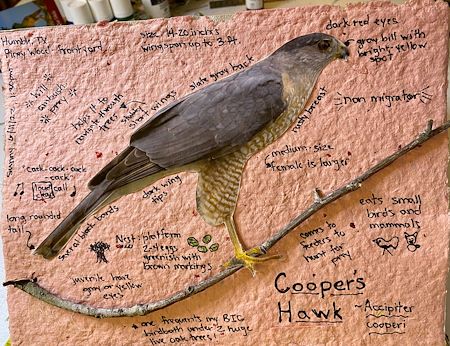 Humble, TX
Piney Woods - frontyard
size 14-20 inches
wingspan up to 3 ft.
dark red eyes
gray bill with
bright yellow
spot
slate gray back
non migratory
rusty breast
short wings
help it to
navigate through
trees
medium size
female is larger
dark wing
tips
"cack-cack-cack
-cack"
loud call
long rounded
tail
several black bands
Nest: platform
2-4 eggs
greenish with
brown markings
juvenile have
gray or yellow
eyes
eats small
birds and
mammals
comes to
feeders to
hunt for
prey
Cooper's
Hawk
~ Accipiter
cooperi
* one frequents my BIG
birdbath under 2 huge
live oak trees!